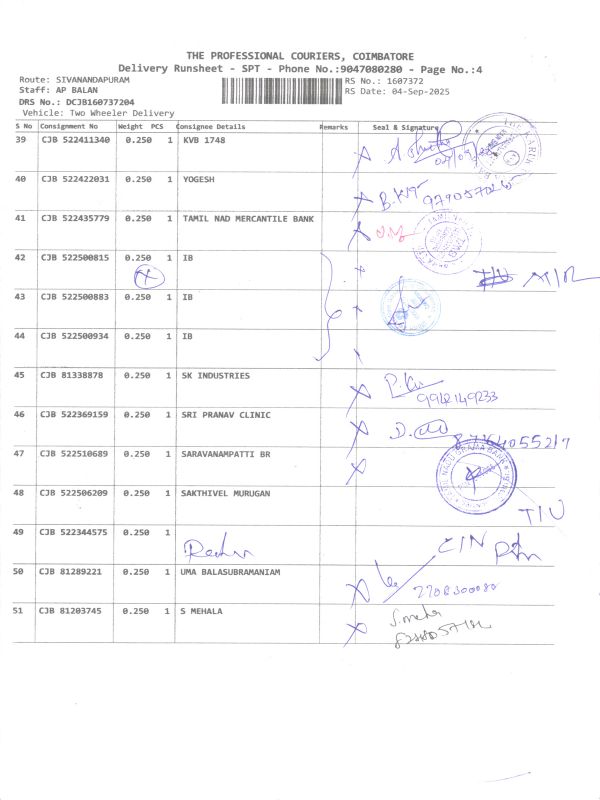 THE PROFESSIONAL COURIERS, COIMBATORE
Delivery Runsheet - SPT - Phone No.:9047080280 - Page No.:4
Route: SIVANANDAPURAM RS No.: 1607372
Staff: AP BALAN RS Date: 04-Sep-2025
DRS No.: DCJB160737204
Vehicle: Two Wheeler Delivery
S No Consignment No Weight PCS Consignee Details Remarks Seal & Signature
39 CJB 522411340 0.250 1 KVB 1748
40 CJB 522422031 0.250 1 YOGESH
41 CJB 522435779 0.250 1 TAMIL NAD MERCANTILE BANK
42 CJB 522500815 0.250 1 IB
43 CJB 522500883 0.250 1 IB
44 CJB 522500934 0.250 1 IB
45 CJB 81338878 0.250 1 SK INDUSTRIES
9942149233
46 CJB 522369159 0.250 1 SRI PRANAV CLINIC
47 CJB 522510689 0.250 1 SARAVANAMPATTI BR
48 CJB 522506209 0.250 1 SAKTHIVEL MURUGAN
TIU
49 CJB 522344575 0.250 1
CIN
50 CJB 81289221 0.250 1 UMA BALASUBRAMANIAM
51 CJB 81203745 0.250 1 S MEHALA